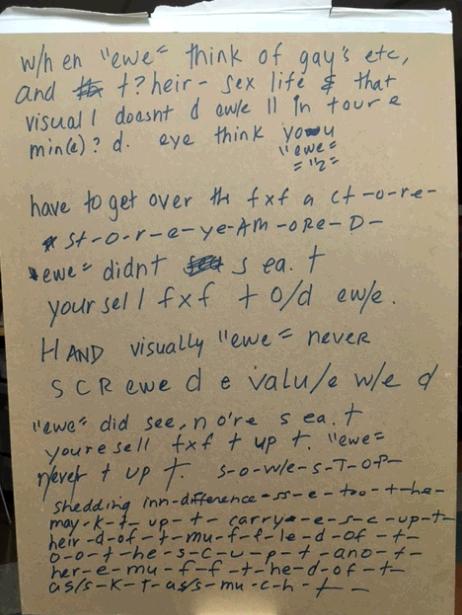 w/h en "ewe" think of gay's etc,
and t?heir - sex life & that
visual l doasnt d ewe ll in tour e
min(e)? d. eye think you
"ewe"
= "½ =
have to get over the fxf a ct-o-re-
* st-o-r-e-ye-AM-oRe-D-
*ewe" didnt s ea. t
your sel l fxf t o/d ew/e.
HAND visually "ewe" never
SCR ewe d e valu/e w/e d
"ewe" did see, n o're s ea. t
youre sell fxf t up t. "ewe"
never t up t. s-o-w/e-s-T-OP-
shedding inn-difference-ss-e-too-t-he-
may-k-t-up-t-carry-e-s-c-up-t-
heir-d-of-t-mu-f-f-le-d-of-t-
o-o-t-he-s-c-u-p-t-ano-t-
her-e-mu-f-f-t-he-d-of-t-
as/s-k-t-as/s-mu-c-h-t-